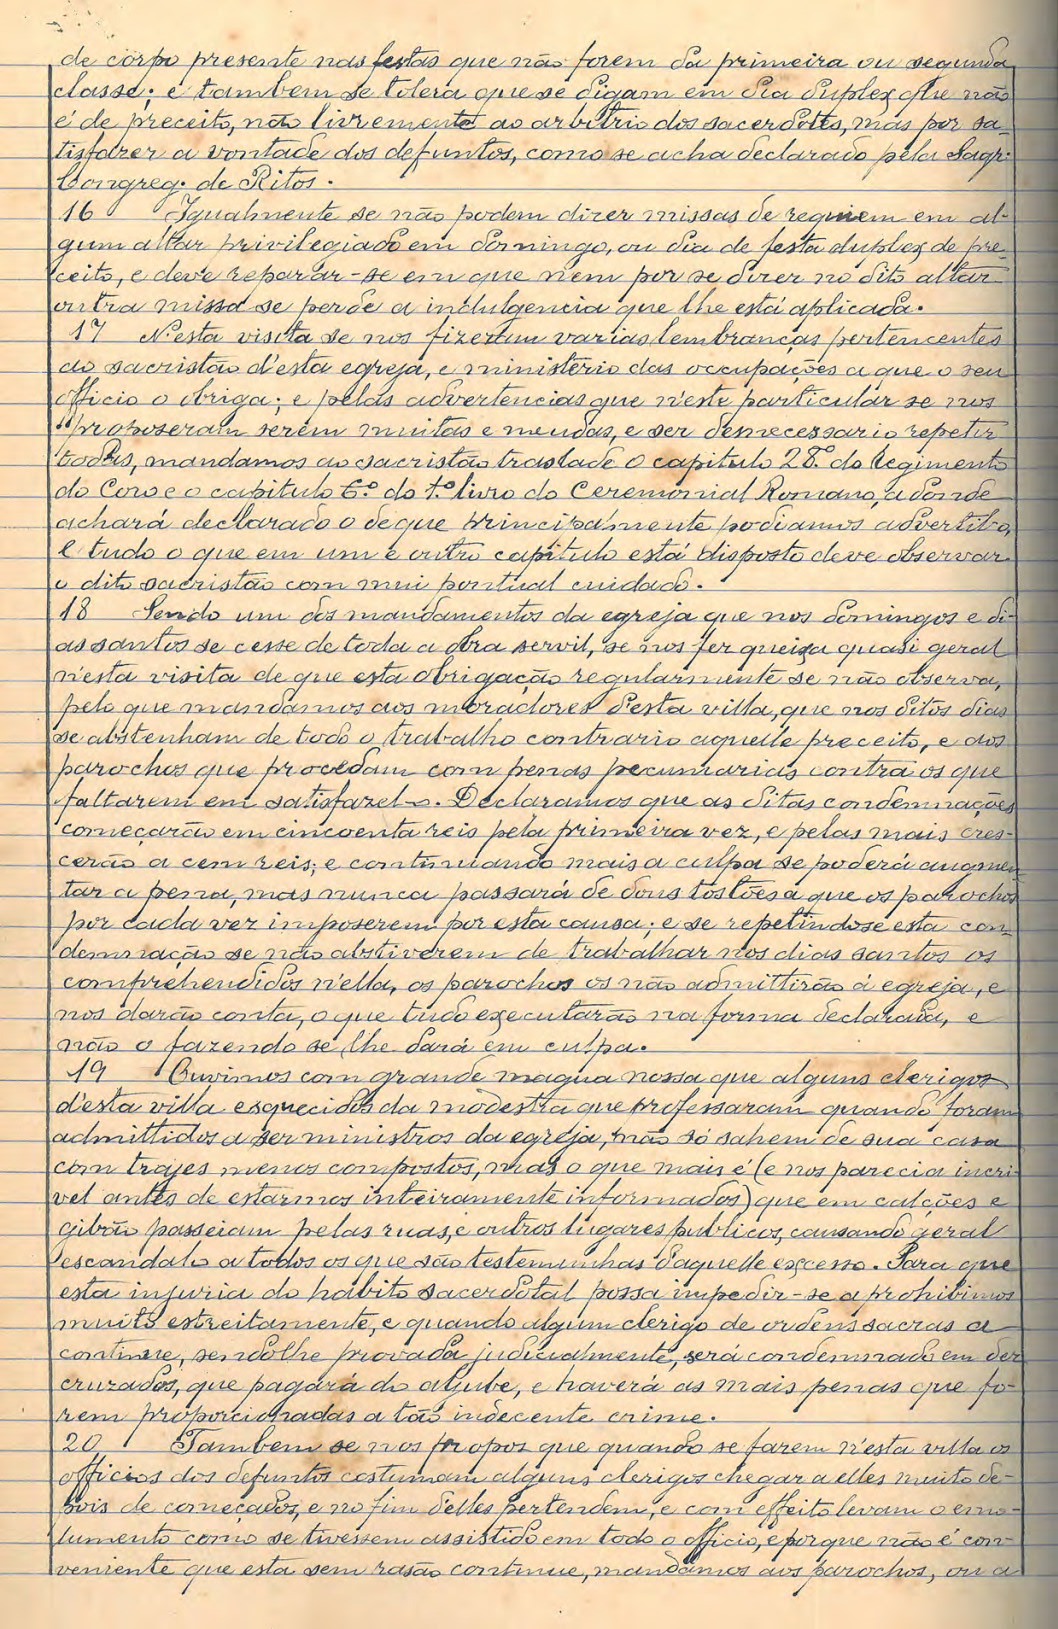 de corpo presente nas festas que não forem da primeira ou segunda
classe; e tambem se tolera que se digam em dia duplex que não
é de preceito, não livremente ao arbitrio dos sacerdotes, mas por sa-
tisfazer a vontade dos defuntos, como se acha declarado pela Sagr.
Congreg. de Ritos.
16 Igualmente se não podem dizer missas de requiem em al-
gum altar privilegiado em domingo, ou dia de festa duplex de pre-
ceito, e deve reparar-se em que nem por se dizer no dito altar
outra missa se perde a indulgencia que lhe está aplicada.
17 N'esta visita se nos fizeram varias lembranças pertencentes
ao sacristão d'esta egreja, e ministerio das occupações a que o seu
officio o obriga; e pelas advertencias que n'este particular se nos
proposeram serem muitas e meudas, e ser desnecessario repetir
todas, mandamos ao sacristão traslade o capitulo 28.º do regimento
do Coro e o capitulo 6.º do 1.º livro do Ceremonial Romano, adonde
achará declarado o de que principalmente podiamos advertil-o,
e tudo o que em um e outro capitulo está disposto deve observar
o dito sacristão com mui pontual cuidado.
18 Sendo um dos mandamentos da egreja que nos domingos e di-
as santos se cesse de toda a obra servil, se nos fez queixa quasi geral
n'esta visita de que esta obrigação regularmente se não observa,
pelo que mandamos aos moradores d'esta villa, que nos ditos dias
se abstenham de todo o trabalho contrario aquelle preceito, e aos
parochos que procedam com penas pecuniarias contra os que
faltarem em satisfazel-o. Declaramos que as ditas condemnações
começarão em cincoenta reis pela primeira vez, e pelas mais cres-
cerão a cem reis; e continuando mais a culpa se poderá augmen-
tar a pena, mas nunca passará de dous tostões a que os parochos
por cada vez imposerem por esta causa; e se repetindose esta con-
demnação se não abstiverem de trabalhar nos dias santos os
comprehendidos n'ella, os parochos os não admittirão á egreja, e
nos darão conta, o que tudo executarão na forma declarada, e
não o fazendo se lhe dará em culpa.
19 Ouvimos com grande magua nossa que alguns clerigos
d'esta villa esquecidos da modestia que professaram quando foram
admittidos a ser ministros da egreja, não só sahem de sua casa
com trajes menos compostos, mas o que mais é (e nos parecia incri-
vel antes de estarmos inteiramente informados) que em calções e
gibão passeiam pelas ruas, e outros lugares publicos, causando geral
escandalo a todos os que são testemunhas d'aquelle excesso. Para que
esta injuria do habito sacerdotal possa impedir-se a prohibimos
muito estreitamente, e quando algum clerigo de ordens sacras a
continue, sendolhe provada judicialmente, será condemnado em dez
cruzados, que pagará do aljube, e haverá as mais penas que fo-
rem proporcionadas a tão indecente crime.
20 Tambem se nos propos que quando se fazem n'esta villa os
officios dos defuntos costumam alguns clerigos chegar a elles muito de-
pois de começados, e no fim d'elles pertendem, e com effeito levam o emo-
lumento como se tivessem assistido em todo o officio, e porque não é con-
veniente que esta sem rasão continue, mandamos aos parochos, ou a